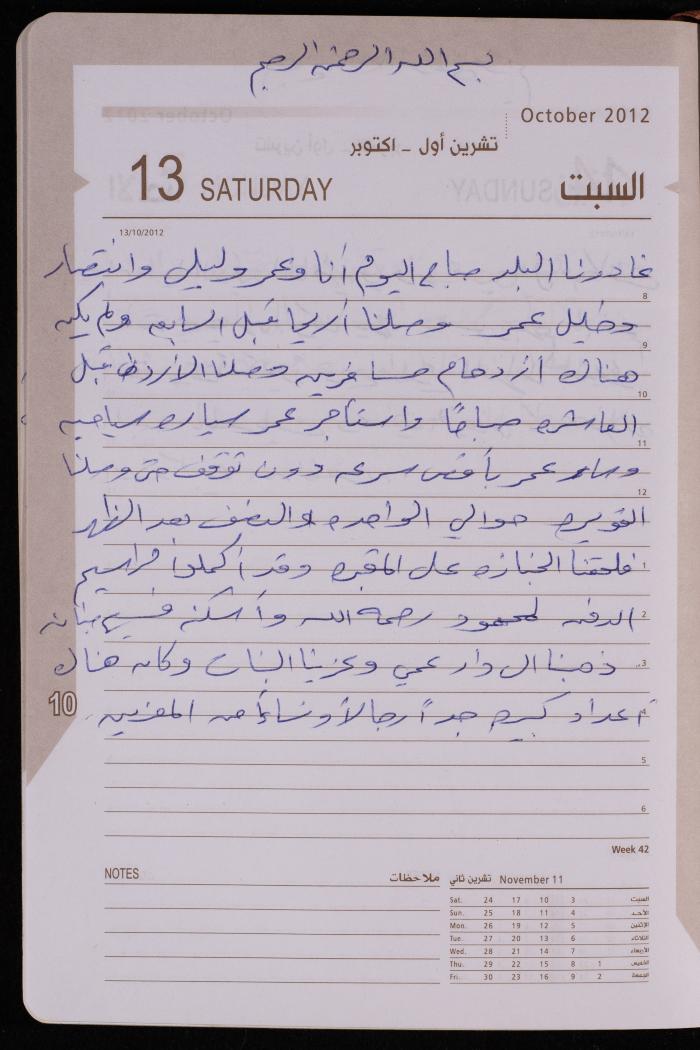 بسم الله الرحمن الرحيم
October 2012
تشرين أول - اكتوبر
13 SATURDAY السبت
13/10/2012
غادرنا البلد صباح اليوم أنا وعمر وليلى وانتصار
8
وخليل عمر وصلنا أريحا قبل السابعه ولم يكن
9
هناك ازدحام مسافرين وصلنا الأردن قبل
10
العاشره صباحًا واستأجر عمر سياره سياحيه
11
وسار عمر بأقصى سرعه دون توقف حتى وصلنا
12
القويره حوالي الواحده والنصف بعد الظهر
1
فلحقنا الجنازه على المقبره وقد أكملوا مراسيم
2
الدفن لمحمود رحمه الله وأسكنه فسيح جنانه
3
ذهبنا الى دار عمي وعزينا البنات وكان هناك
4
أعداد كبيره جداً رجالاً ونساءً من المعزين
10
5
6
Week 42
NOTES ملاحظات
November 11 تشرين ثاني
Sat. 24 17 10 3 السبت
Sun. 25 18 11 4 الأحد
Mon. 26 19 12 5 الإثنين
Tue. 27 20 13 6 الثلاثاء
Wed. 28 21 14 7 الأربعاء
Thu. 29 22 15 8 1 الخميس
Fri. 30 23 16 9 2 الجمعة